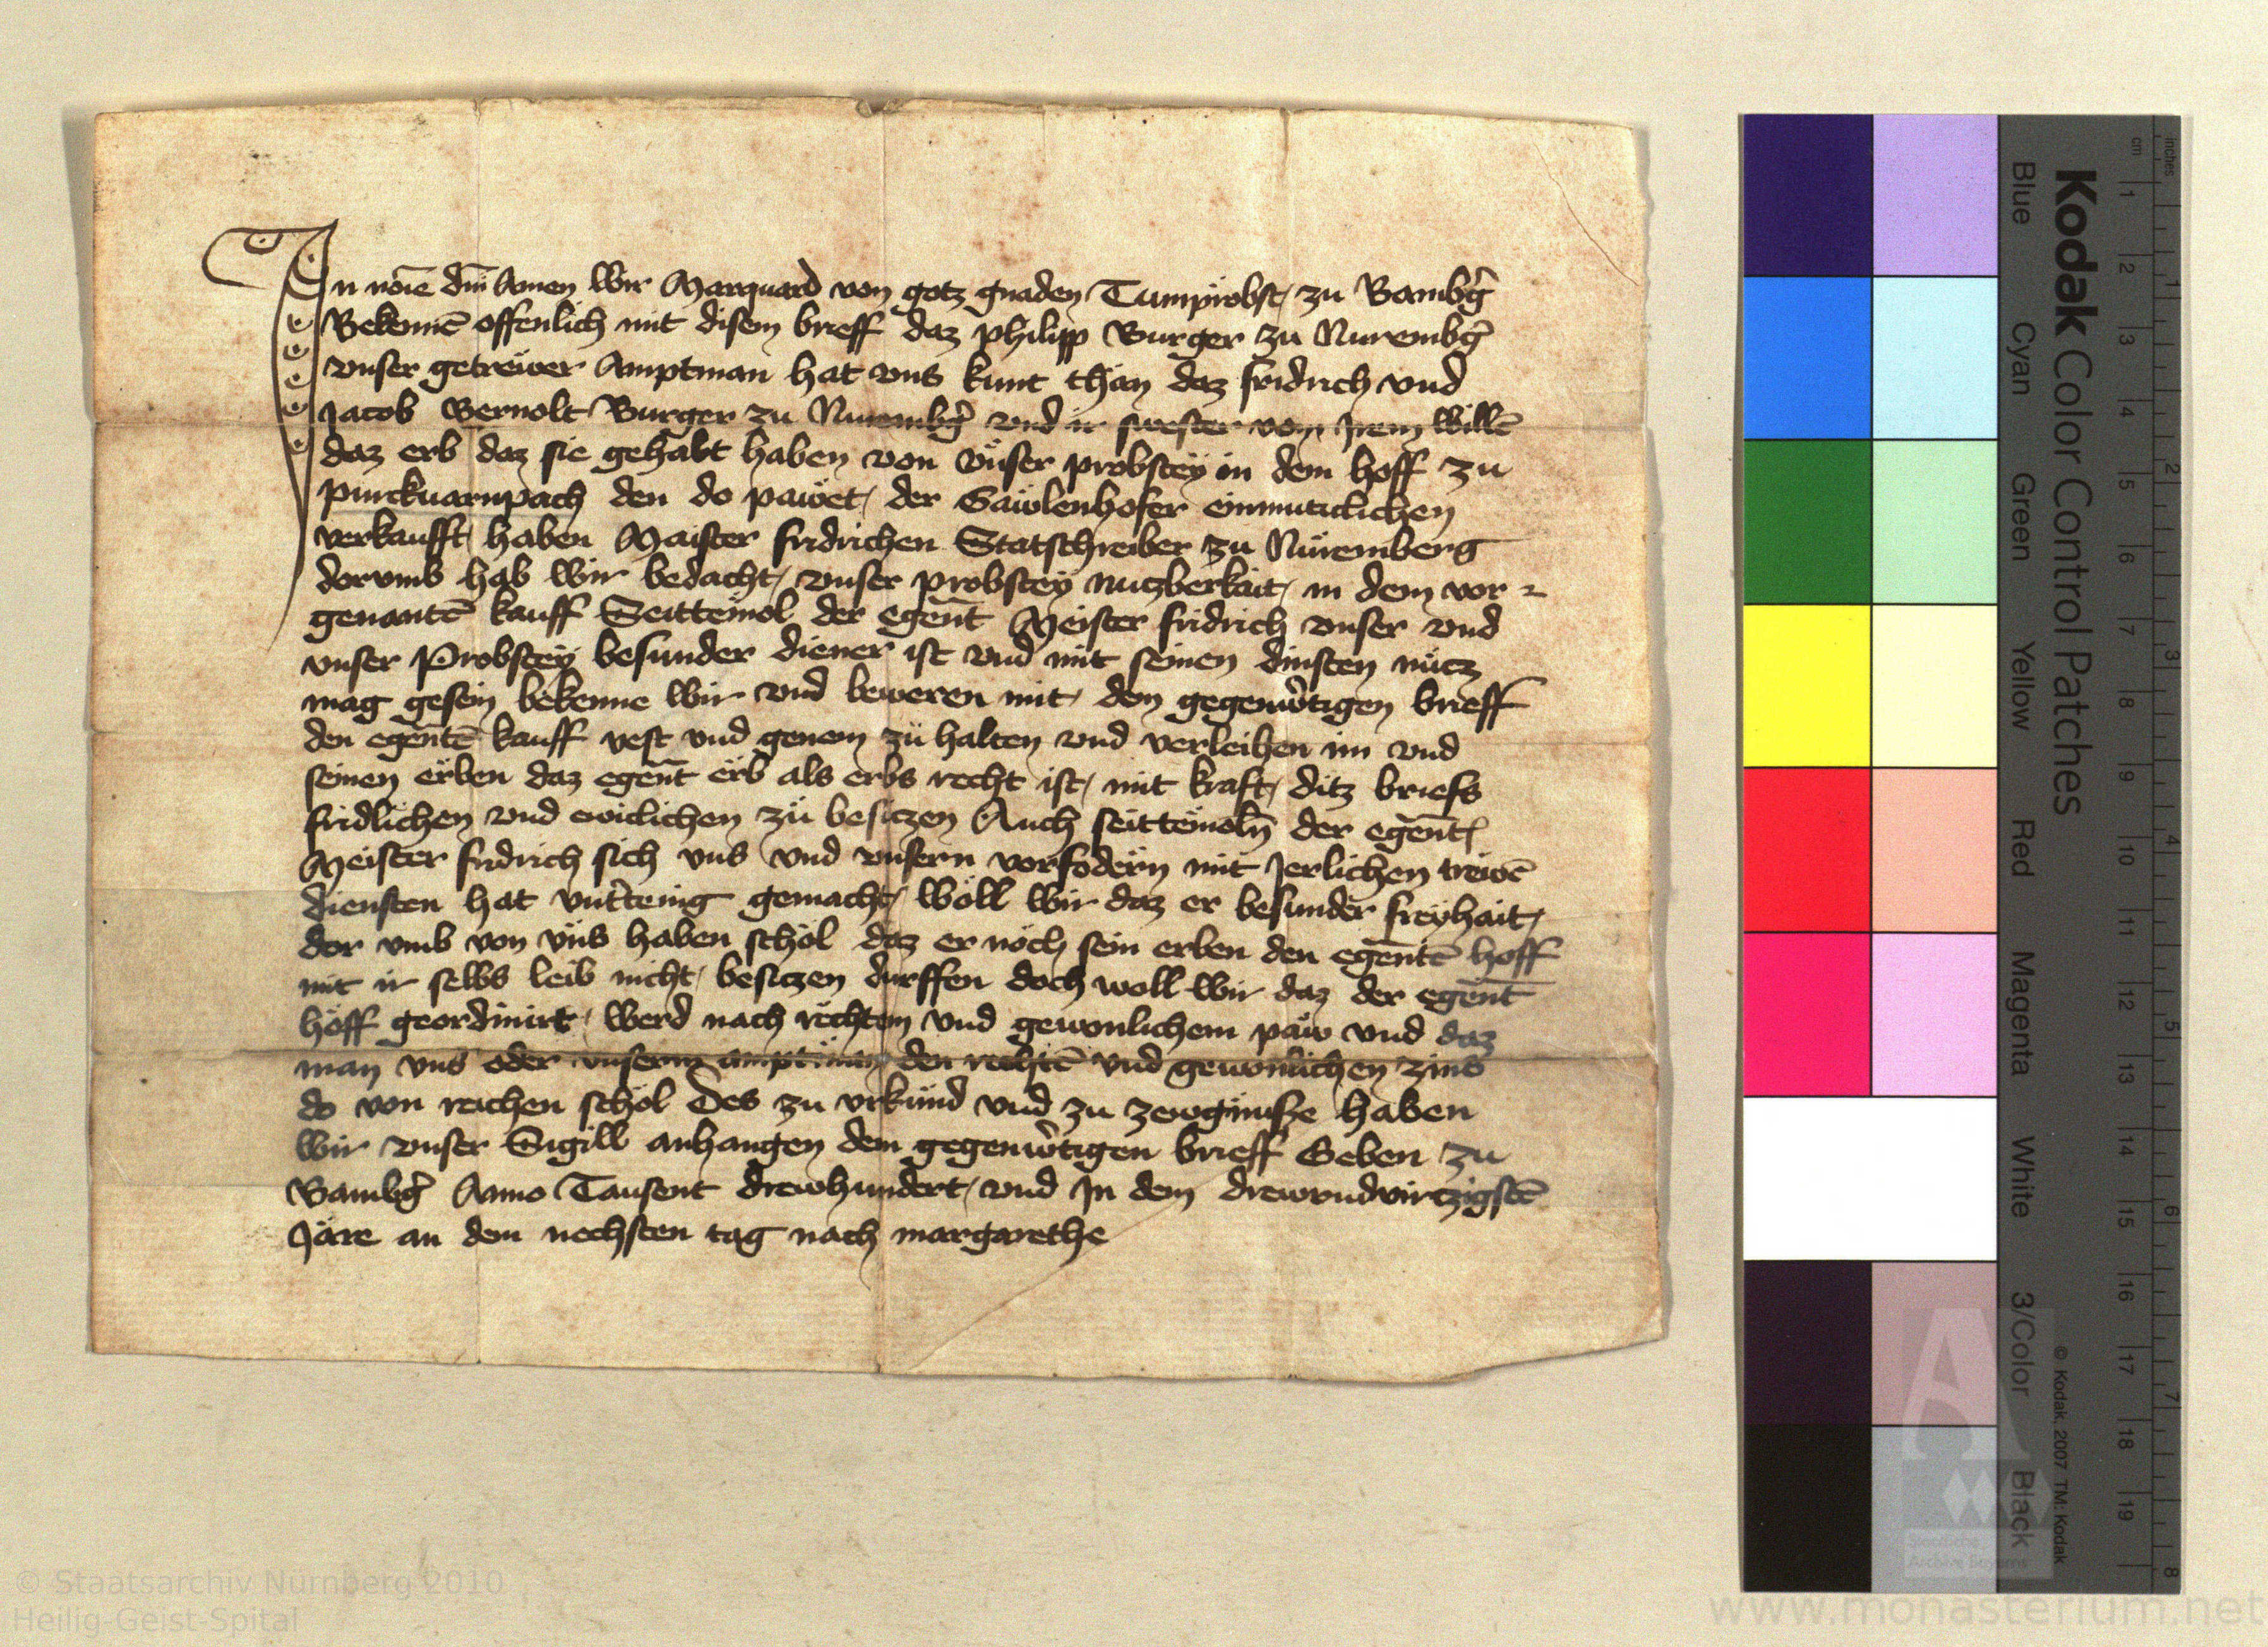 In noïe dn̄i Amen Wir Marquard von gotz gnaden Tumprobst zu Bambg̉
Bekennē offenlich mit disem brieff daz philipp Burger zu Nurembg̉
vnser getrewer Amptman hat vns kunt than daz fridrich vnd
Jacob Bernolt Burger zu Nurembg̉ vnd ir swester vom Jrem willē
daz erb daz sie gehabt haben von vnser probstey in dem hoff zu
den do pawet der einmuticlichen
verkaufft haben Maister fridrichen Statschreiber zu Nüremberg
dorvmb hab wir bedacht vnser probstey nutzberkait in dem vor
genantē kauff Seittemol der egen̄t Meister fridrich vnser vnd
vnser Probstey besunder diener ist vnd mit seinen dinsten nücz
mag gesein bekenne wir vnd beweren mit dem gegenẘtigen brieff
den egen̄tē kauff vest vnd genem zü halten vnd verleihen im vnd
seinen erben daz egen̄t erb als erbs recht ist mit kraft ditz briefs
fridlichen vnd ewiclichen zü besiczen Auch seittemoln der egen̄t
Meister fridrich sich vns vnd vnsern vorfodern mit Jerlichen trewē
diensten hat vnt̉tenig gemacht wöll wir daz er besunder freyhait
dor vmb von vns haben schol daz er noch sein erben den egen̄tē hoff
mit ir selbs leib nicht besiczen durffen doch woll wir daz der egen̄t
hoff geordinirt werd nach rechtem vnd gewonlichem paw vnd daz
man vns oder vnserm amptman den rechtē vnd gewonlichen zins
do von reichen schol Des zu vrkund vnd zu zewgnusze haben
wir vnser Sigill anhangen dem gegenẘtigen brieff Geben zu
Bambg̉ Anno Tausent drewhundert vnd Jn dem drewvndvirtzigstē
Jare an dem nechsten tag nach margarethe
Kodak Color Control Patches
Blue Cyan Green Yellow Red Magenta White 3/Color Black
© Kodak, 2007 TM: Kodak
cm 1 2 3 4 5 6 7 8 9 10 11 12 13 14 15 16 17 18 19
inches 1 2 3 4 5 6 7 8
Staatliche
Archive Bayerns
© Staatsarchiv Nürnberg 2010
Heilig-Geist-Spital
www.monasterium.net